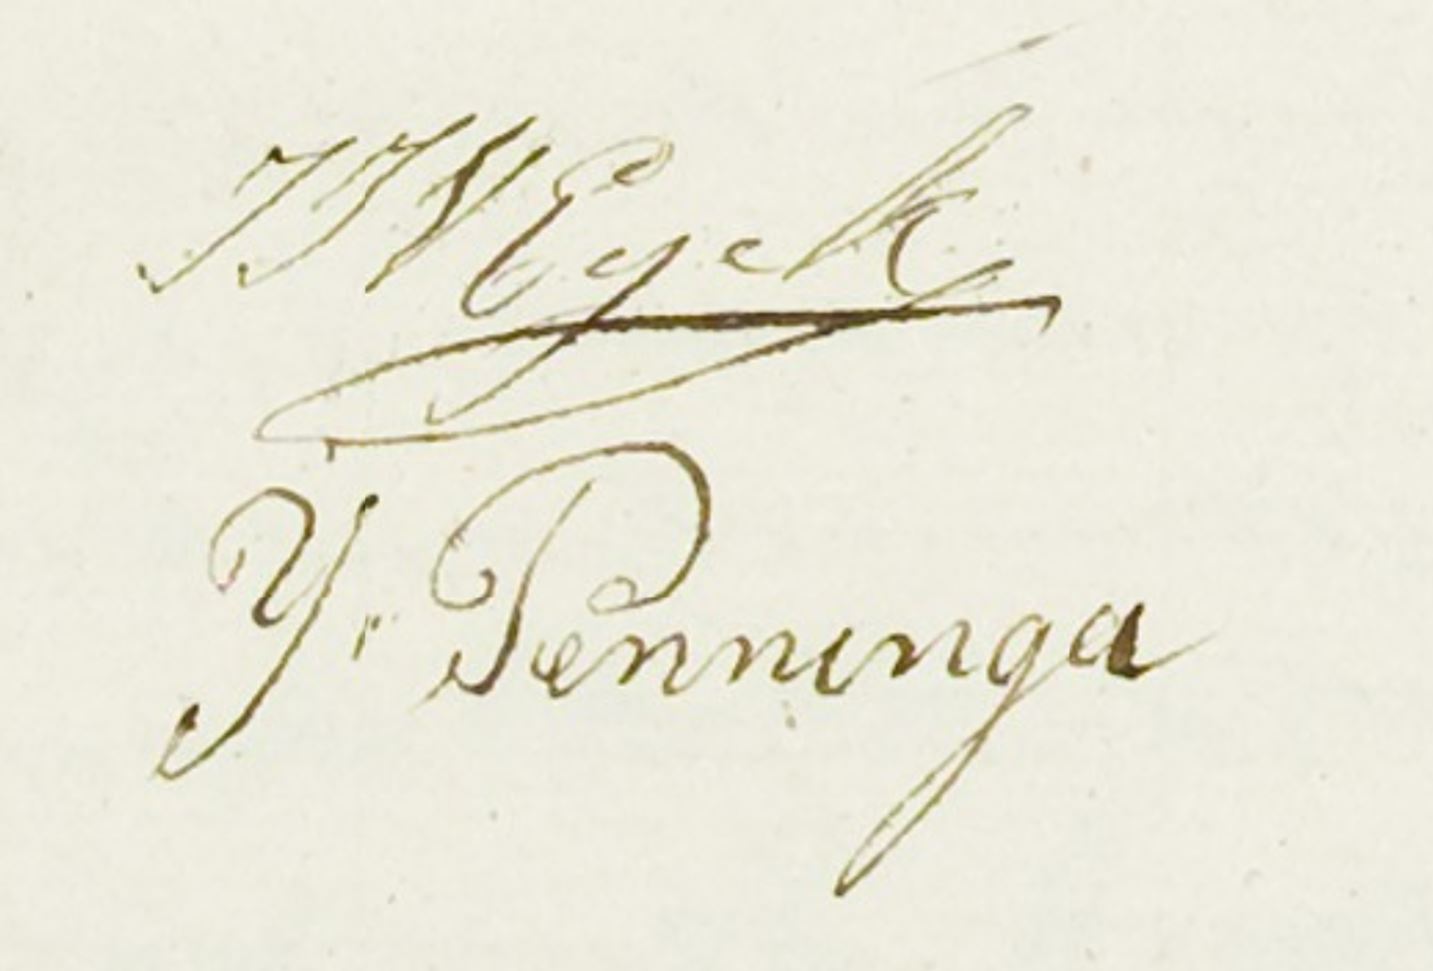 J J V Eyck
Y. Penninga